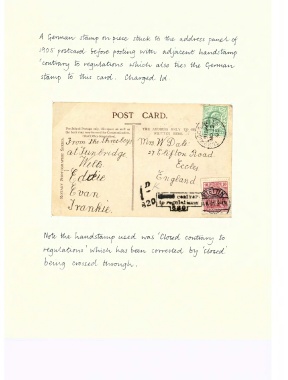 A German stamp on piece stuck to the address panel of
1905 postcard before posting with adjacent handstamp
'contrary to regulations' which also ties the German
stamp to this card. Charged 1d.
POST CARD.
From the three boys
at Tunbridge
Wells
Eddie
Evan
Frankie.
Miss W Dale
27 Clifton Road
Eccles
England
D
1
420
contrary
to regulations
Note the handstamp used was 'Closed contrary to
regulations' which has been corrected by 'closed'
being crossed through.